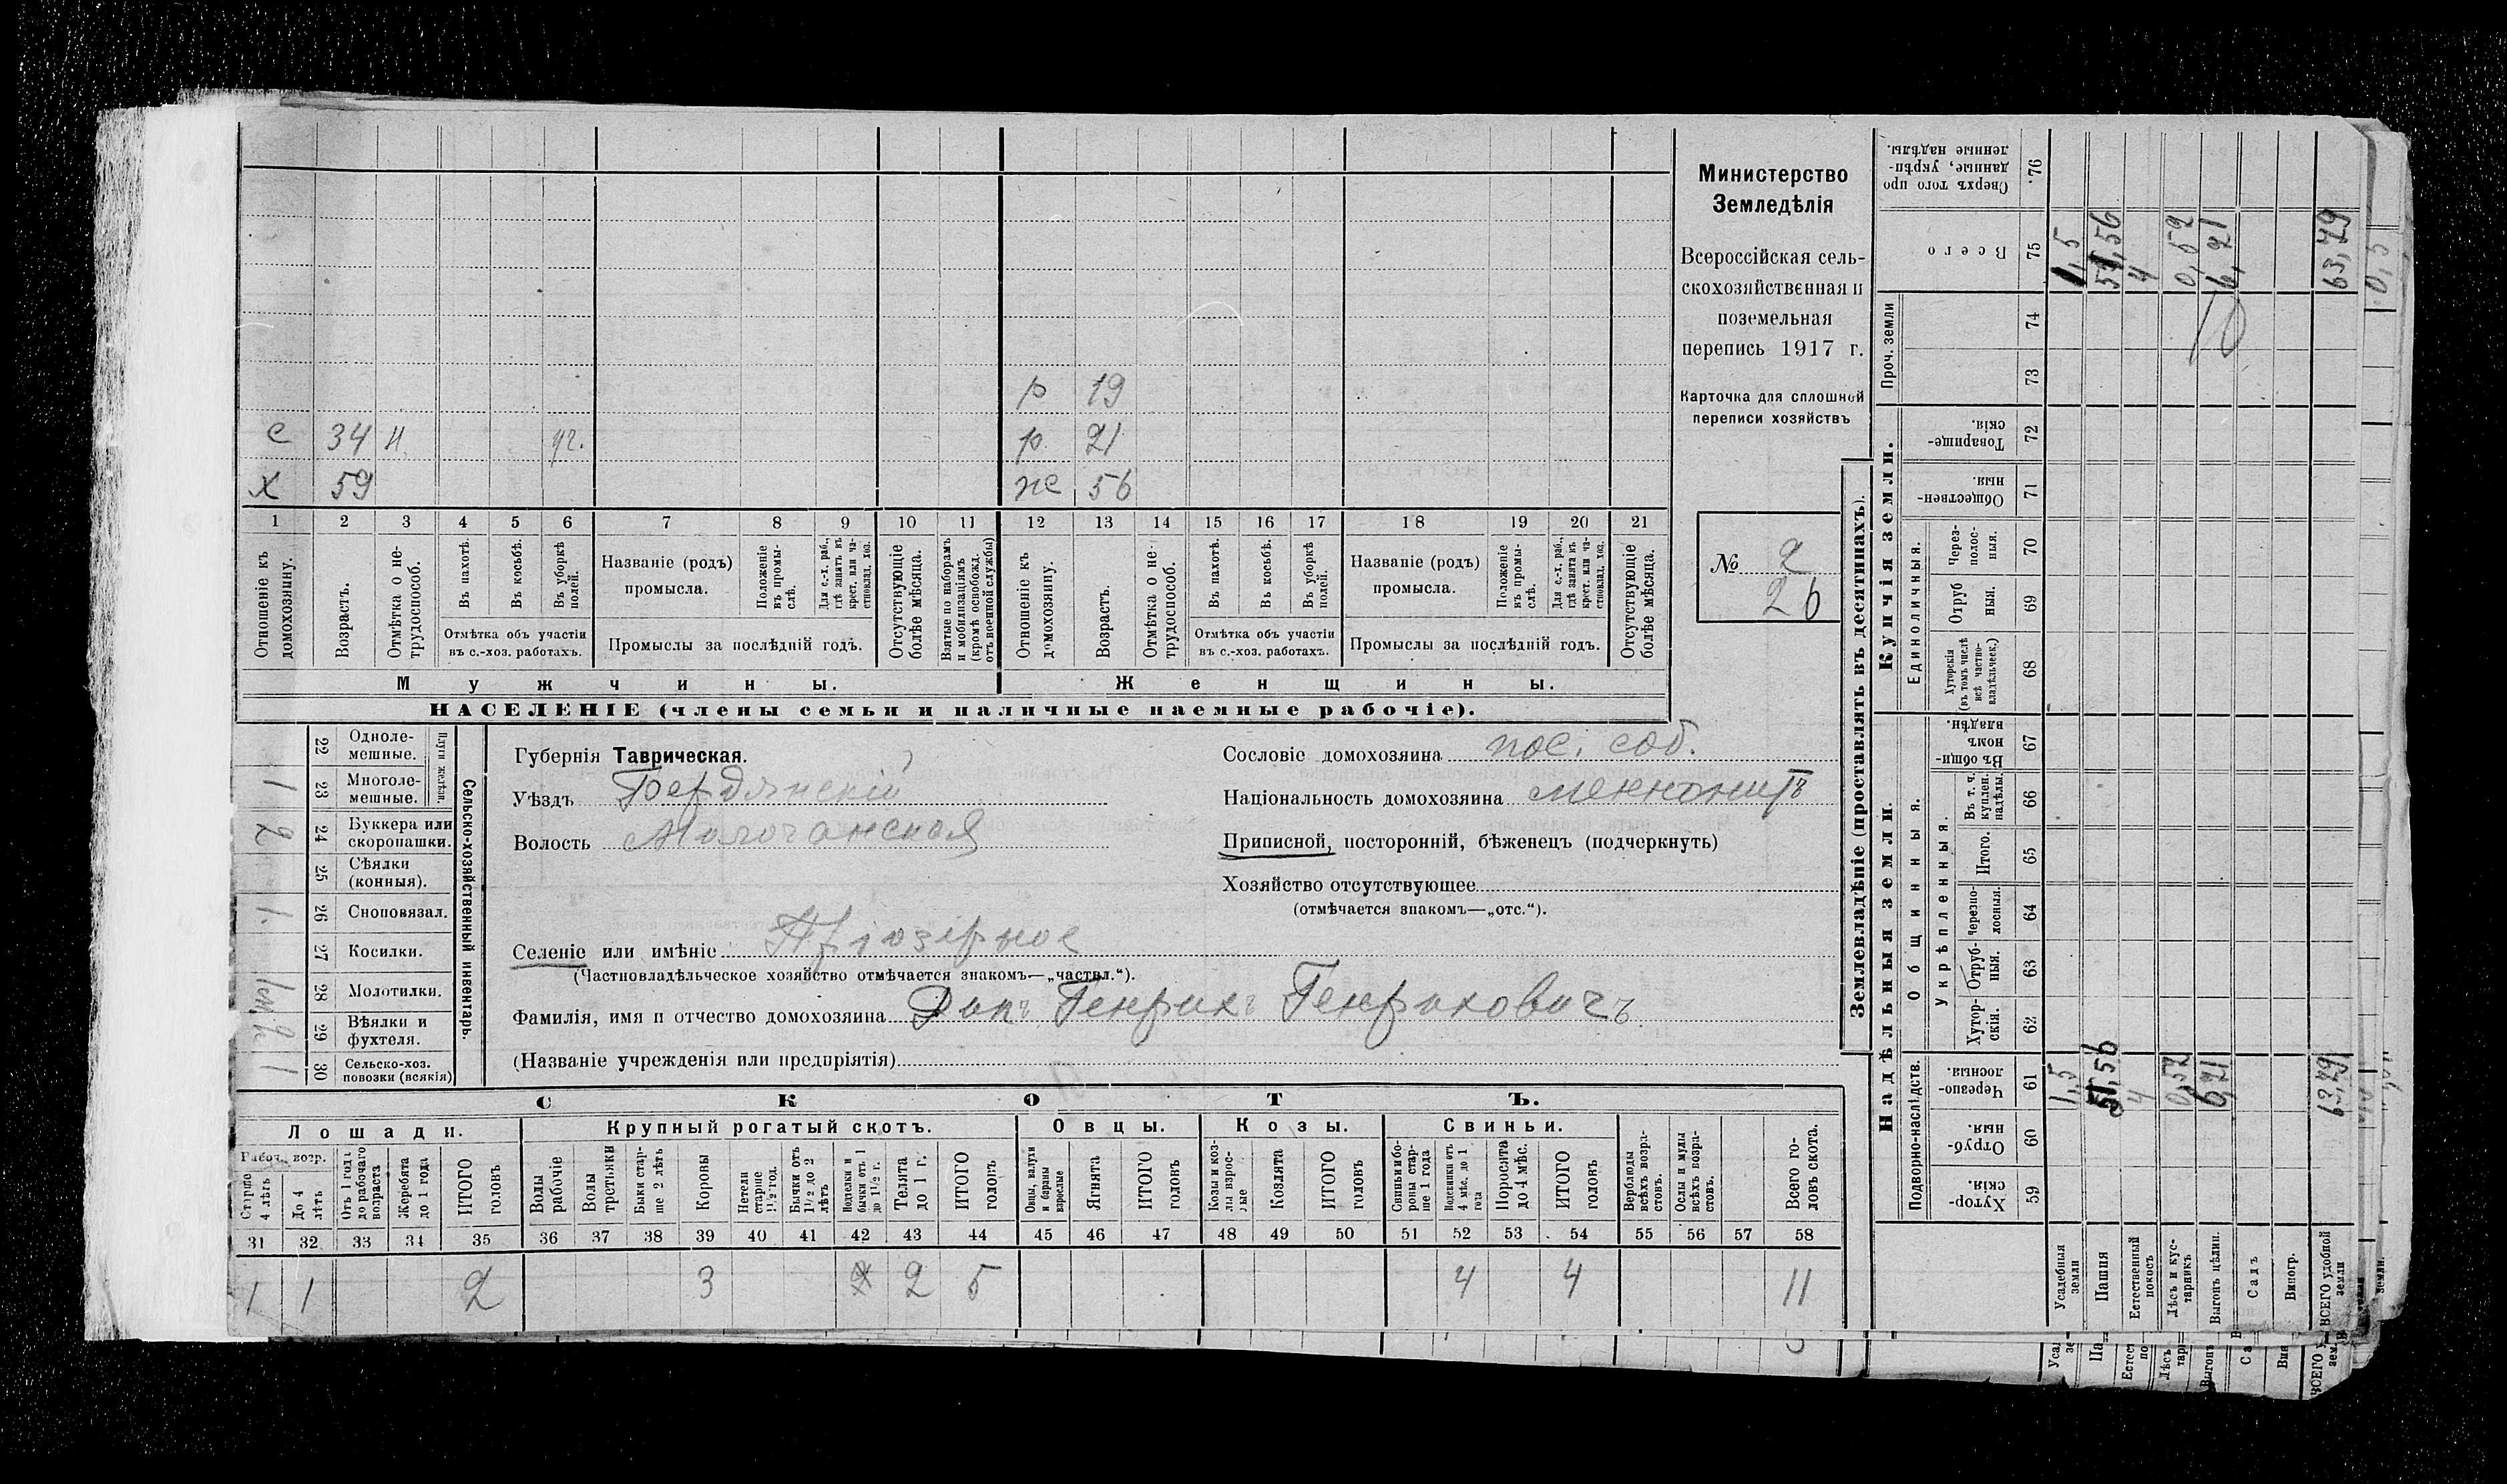 Министерство
Земледѣлія
Всероссійская сель-
скохозяйственная и
поземельная
перепись 1917 г.
Карточка для сплошной
переписи хозяйствъ
№ 2
26
р 19
с 34 н. уг.
р. 21
х 59
же 56
1 2 3 4 5 6 7 8 9 10 11 12 13 14 15 16 17 18 19 20 21
Отношеніе къ домохозяину.
Возрастъ.
Отмѣтка о не-трудоспособ.
Въ пахотѣ.
Въ косьбѣ.
Въ уборкѣ полей.
Отмѣтка объ участіи
въ с.-хоз. работахъ.
Названіе (родъ)
промысла.
Положеніе въ промы-слѣ.
Для с.-х. раб., гдѣ занятъ въ крест. или ча-стновлад. хоз.
Промыслы за послѣдній годъ.
Отсутствующіе болѣе мѣсяца.
Взятые по наборамъ и мобилизаціямъ (кромѣ освобожд. отъ военной службы)
Отношеніе къ домохозяину.
Возрастъ.
Отмѣтка о не-трудоспособ.
Въ пахотѣ.
Въ косьбѣ.
Въ уборкѣ полей.
Отмѣтка объ участіи
въ с.-хоз. работахъ.
Названіе (родъ)
промысла.
Положеніе въ промы-слѣ.
Для с.-х. раб., гдѣ занята въ крест. или ча-стновлад. хоз.
Промыслы за послѣдній годъ.
Отсутствующіе болѣе мѣсяца.
Мужчины.
Женщины.
НАСЕЛЕНІЕ (члены семьи и наличные наемные рабочіе).
Сельско-хозяйственный инвентарь.
Плуги желѣзн.
22 Одноле-мешные.
1 23 Многоле-мешные.
2 24 Буккера или скоропашки.
25 Сѣялки (конныя).
1. 26 Сноповязал.
27 Косилки.
28 Молотилки.
29 Вѣялки и фухтеля.
30 Сельско-хоз. повозки (всякія)
Губернія Таврическая.
Уѣздъ Бердянскій
Волость Молочанская
Сословіе домохозяина пос. соб.
Національность домохозяина меннонитъ
Приписной, посторонній, бѣженецъ (подчеркнуть)
Хозяйство отсутствующее
(отмѣчается знакомъ—„отс.“).
Селеніе или имѣніе Пріозерное
(Частновладѣльческое хозяйство отмѣчается знакомъ—„частвл.“).
Фамилія, имя и отчество домохозяина Дикъ Генрихъ Генриховичъ
(Названіе учрежденія или предпріятія)
СКОТЪ.
Лошади.
Крупный рогатый скотъ.
Овцы.
Козы.
Свиньи.
Рабоч. возр.
Старше 4 лѣтъ
До 4 лѣтъ
Отъ 1 года до рабочаго возраста
Жеребята до 1 года
ИТОГО головъ
Волы рабочіе
Волы третьяки
Быки стар-ше 2 лѣтъ
Коровы
Нетели старше 1½ год.
Бычки отъ 1½ до 2 лѣтъ
Подтелки и бычки отъ 1 до 1½ г.
Телята до 1 г.
ИТОГО головъ
Овцы, валухи и бараны взрослые
Ягнята
ИТОГО головъ
Козы и коз-лы взрос-лые
Козлята
ИТОГО головъ
Свиньи и бо-ровы стар-ше 1 года
Подсвинки отъ 4 мѣс. до 1 года
Поросята до 4 мѣс.
ИТОГО головъ
Верблюды всѣхъ возра-стовъ.
Ослы и мулы всѣхъ возра-стовъ.
Всего го-ловъ скота.
31 32 33 34 35 36 37 38 39 40 41 42 43 44 45 46 47 48 49 50 51 52 53 54 55 56 57 58
1 1 2 3 2 5 4 4 11
Землевладѣніе (проставлять въ десятинахъ).
Надѣльныя земли.
Купчія земли.
Проч. земли
Подворно-наслѣдств.
Общинныя.
Укрѣпленныя.
Единоличныя.
Сверхъ того про данные, укрѣп-ленные надѣлы.
Всего
Товарище-скія.
Обществен-ныя.
Через-полос-ныя.
Отруб ныя.
Хуторскія (въ томъ числѣ всѣ частно-владѣльческ.)
Въ общи-номъ владѣн.
Въ т. ч. куплен. надѣлы.
Итого.
Черезпо-лосныя.
Отруб-ныя.
Хутор-скія.
Черезпо-лосныя.
Отруб-ныя.
Хутор-скія.
76. 75 74 73 72 71 70 69 68 67 66 65 64 63 62 61 60 59
Усадебныя земли 1,5 1,5
Пашня 51,56 51,56
Естественный покосъ 4 4
Лѣсъ и кус-тарникъ 0,52 0,52
Выгонъ цѣлин. 6,21 6,21
Садъ
Виногр.
ВСЕГО удобной земли 63,79 63,79
10
0,5
земли.